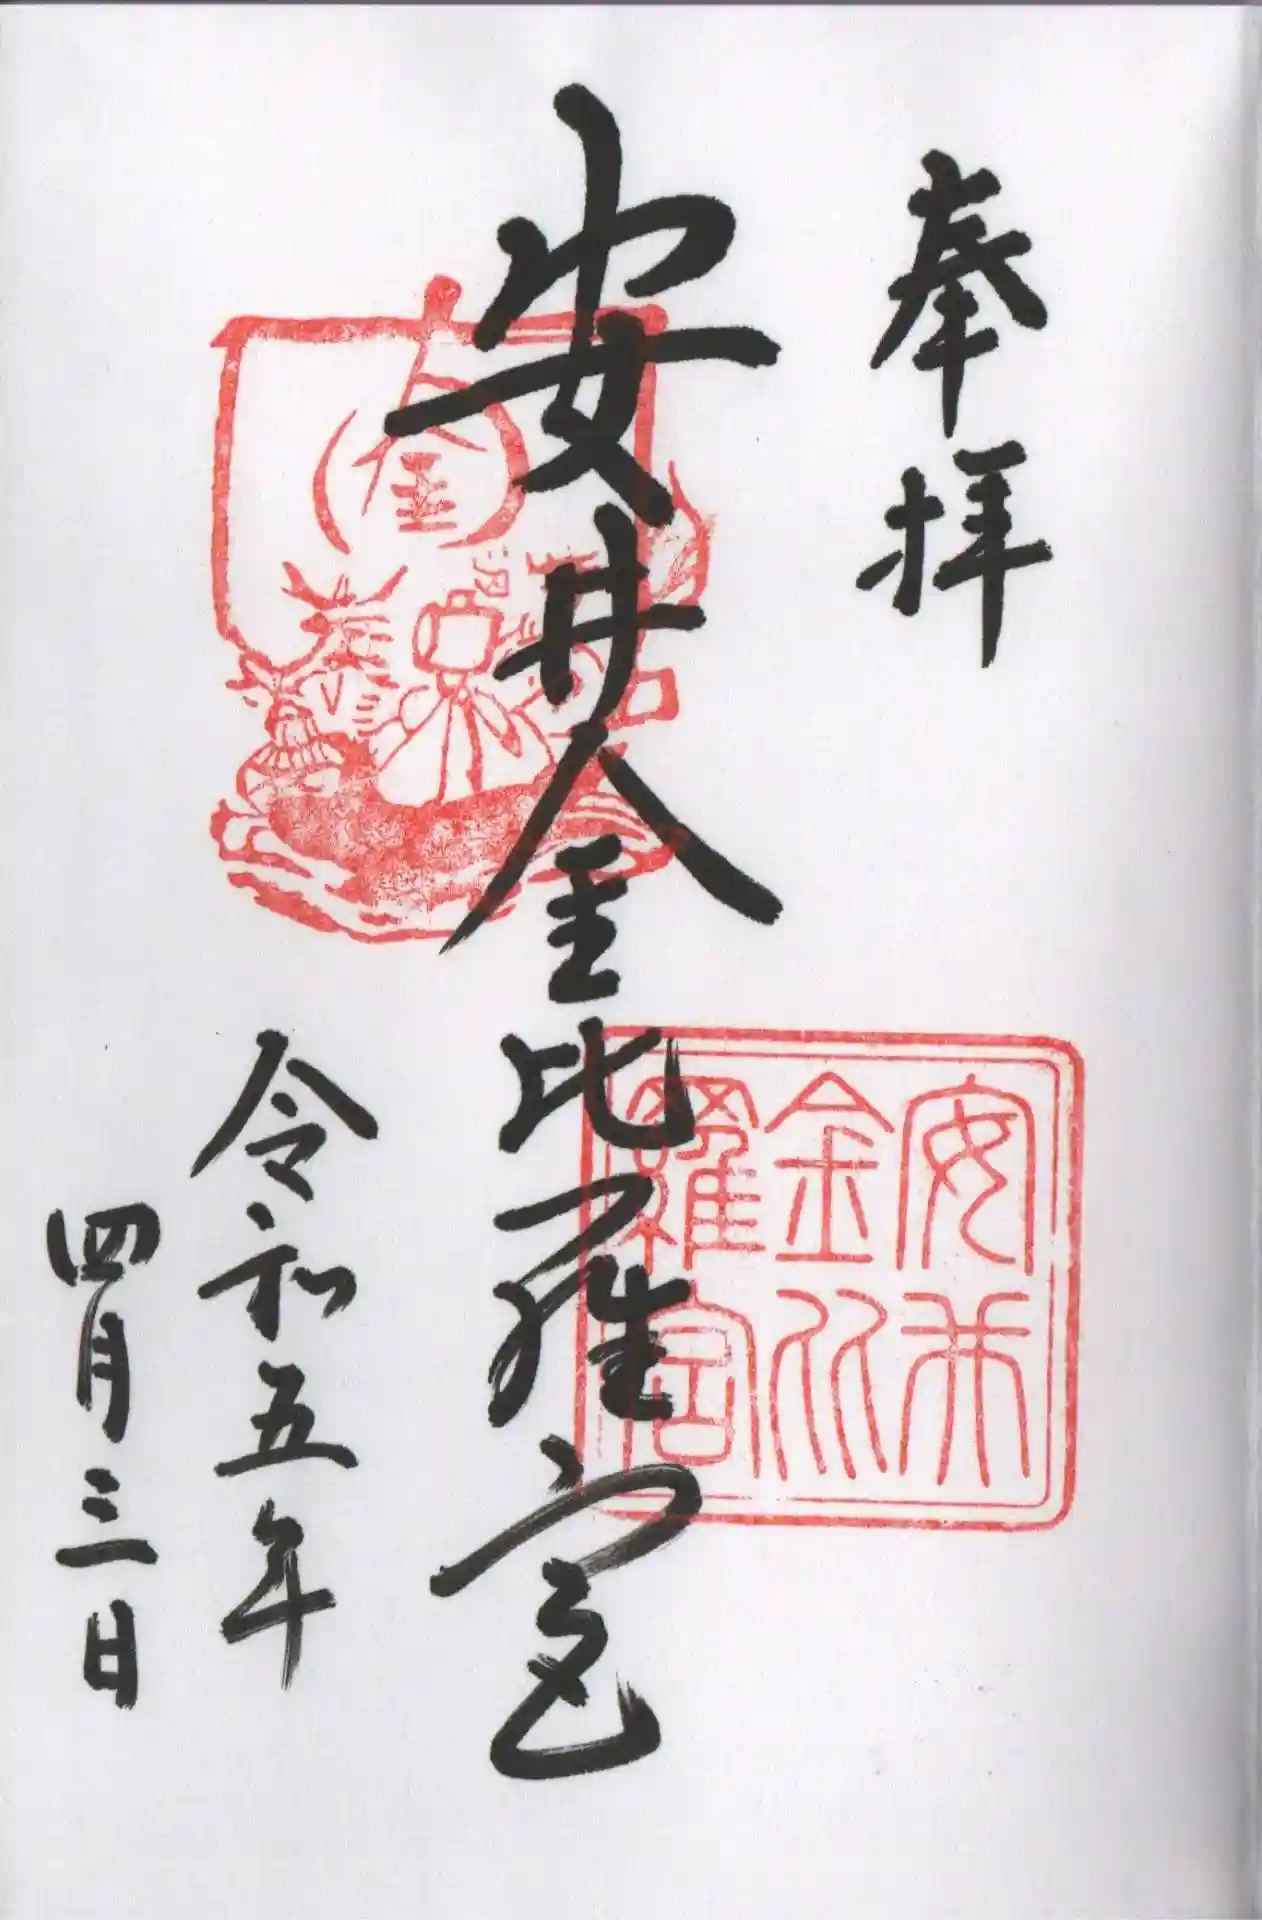 奉拝
安井金比羅宮
安井
金比
羅宮
金
令和五年
四月三日